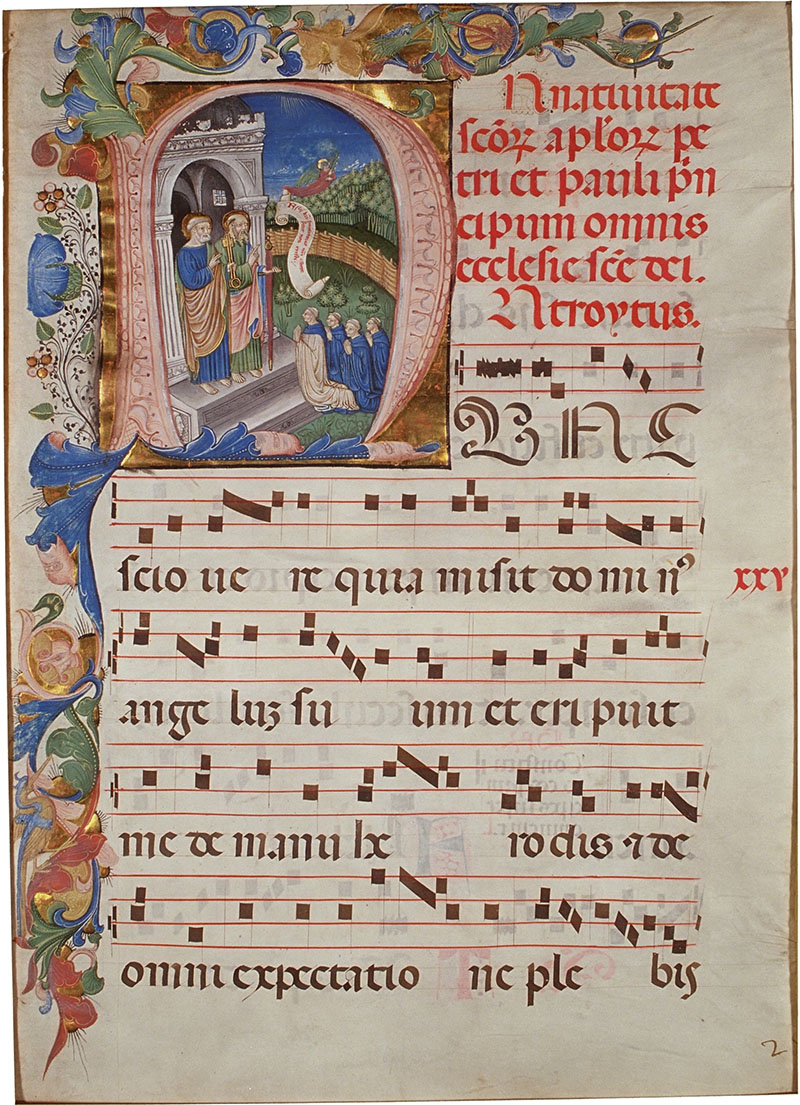 In natiuitate
scōꝝ aplōꝝ pe
tri et pauli p̄n
cipum omnis
ecclesie scē dei.
Introytus.
N UNC
scio ue re quia misit domi nꝰ
xxv
angelu suum et eripuit
me de manu he rodis ⁊ de
omni expectatio ne ple bis
2